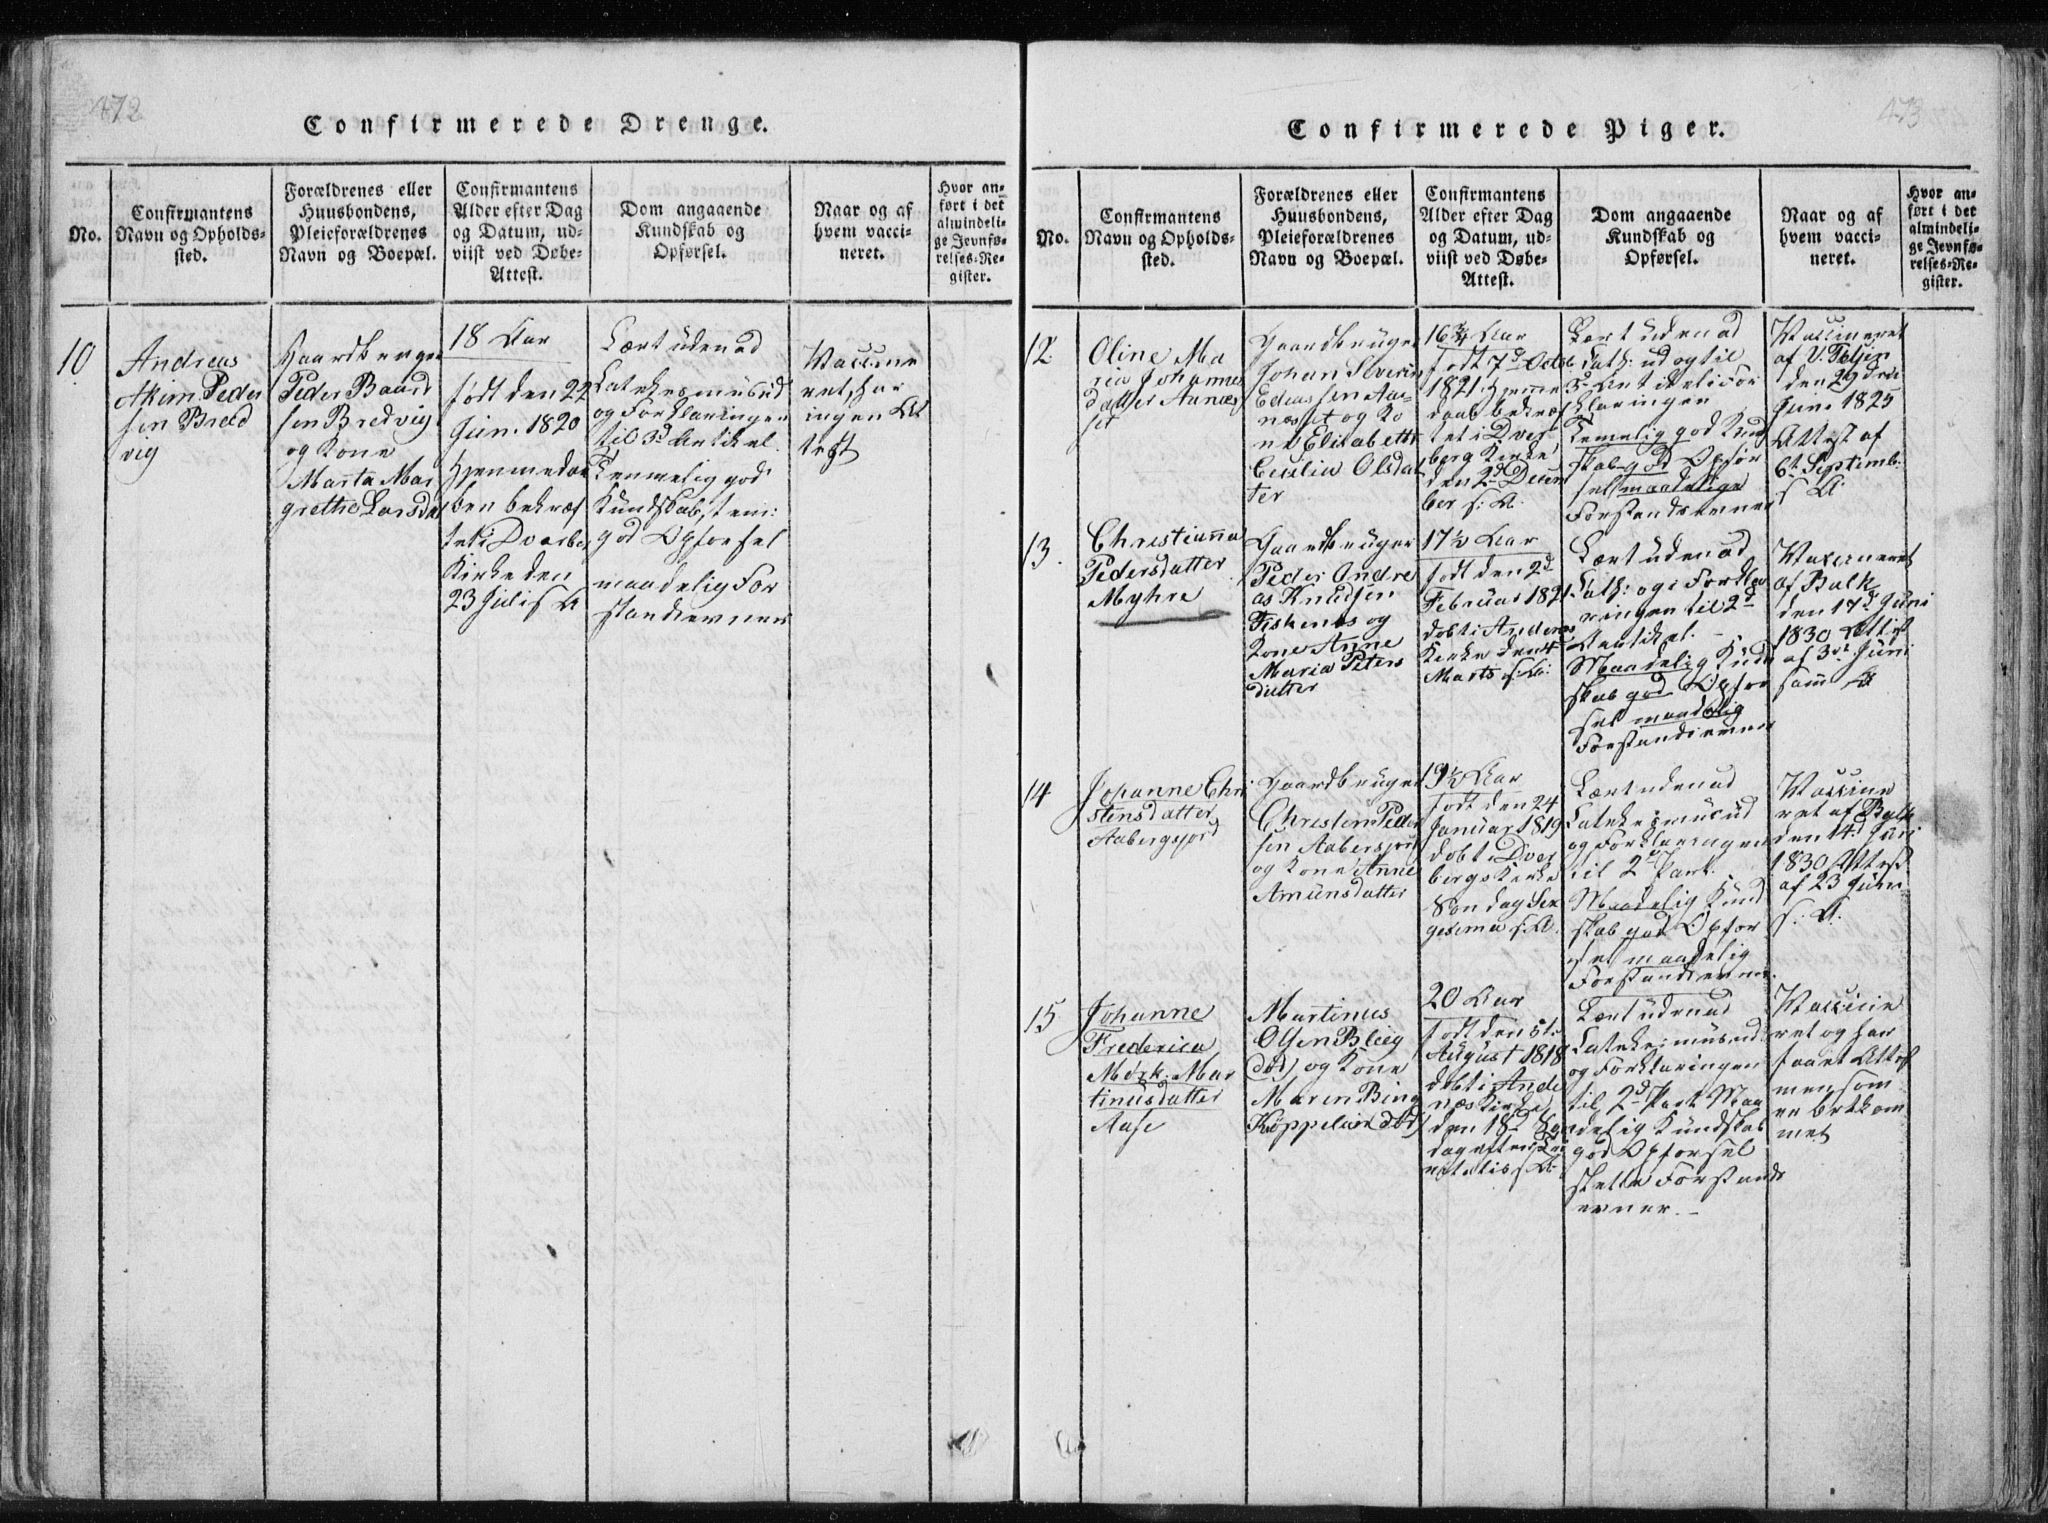 472
Confirmerede Drenge.
No.
Confirmantens
Navn og Opholds-
sted.
Forældrenes eller
Huusbondens,
Pleieforældrenes
Navn og Boepæl.
Confirmantens
Alder efter Dag
og Datum, ud-
viist ved Døbe-
Attest.
Dom angaaende
Kundskab og
Opførsel.
Naar og af
hvem vacci-
neret.
Hvor an-
ført i det
almindeli-
ge Jevnfø-
relses-Re-
gister.
10
Andreas
Akim Peder
sen Bred
vig
Gaardbruger
Peder Baard
sen Bredvig
og Kone
Marta Mar
grethe Larsda
18 Aar
født den 22
Jun. 1820
Hjemmedøb
ben bekræf
tet i Dverber
Kirke den
23 Juli s A
Lært udenad
Catekesmus ud
og Forklaringen
til 3d Artikel.
Temmelig god
Kundskab, tem:
god Opførsel
maadelig For
standsevner
Vaccine
ret, har
ingen At
test
473
Confirmerede Piger.
No.
Confirmantens
Navn og Opholds-
sted.
Forældrenes eller
Huusbondens,
Pleieforældrenes
Navn og Boepæl.
Confirmantens
Alder efter Dag
og Datum, ud-
viist ved Døbe-
Attest.
Dom angaaende
Kundskab og
Opførsel.
Naar og af
hvem vacci-
neret.
Hvor an-
ført i det
almindeli-
ge Jevnfø-
relses-Re-
gister.
12
Oline Ma
ria Johannes
datter Aanæs
set
Gaardbruger
Johan Severin
Eliassen Aa-
næsset og Ko
ne Elisabeth
Cecilia Olsdat
ter
16¾ Aar
født 7d Octob
1821. Hjemme
daab bekræf
tet i Dver
berg Kirke
den 2d Decem
ber s: A.
Lært udenad
Cath: ud og til
3d Artikel i For
klaringen
Temelig god Kund
skab god Opfør
sel maadelige
Forstandsevner
Vaccineret
af
den 29de
Juni 1825
Attest af
6t Septemb.
s A:
13.
Christianna
Pedersdatter
Myhre
Gaardbruger
Peder Andre
as Knudsen
Fiskenes og
Kone Anne
Maria Peters
datter
17½ Aar
født den 2d
Februar 1821
døbt i Andenes
Kirke den 4
Marts s. A:
Lært udenad
Cath: og i Forkla
ringen til 2d
Artikel. -
Maadelig Kund
skab god Opfør
sel maadelig
Forstandsevner
Vaxineret
af Balk
den 17d Juni
1830 Attest
af 3die Juni
samm A
14
Johanne Chri
stensdatter
Aabergsjord
Gaardbruger
Christen Peder
sen Aabersjord
og Kone Anne
Amunsdatter
19½ Aar
født den 24
Januar 1819
døbt i Dver
bergs Kirke
Søndag Sex
gesima s. A.
Lært udenad
Catekesmus ud
og Forklaringen
til 2d Part.
Maadelig Kund
skab god Opfør
sel maadelig
Forstandsevner.
Vaccine
ret af Balk
den 14d Juni
1830 Attest
af 23 Juni
s. A.
15
Johanne
Frederica
Mørk Mar
tinusdatter
Aase
Martinus
Olsen Bleeg
død) og Kone
Maren Bing
Køppelvier død)
20 Aar
født den 5t
August 1818
døbt i Ande
næs Kirke
den 18d Søn
dag efter Tri
netatis s A.
Lært udenad
Catekesmus ud
og Forklaringen
til 2d Part. Maa
delig Kundskab
god Opførsel
slette Forstands
evner. -
Vaccine
ret og har
faaet Attest
men som
er bortkom
met